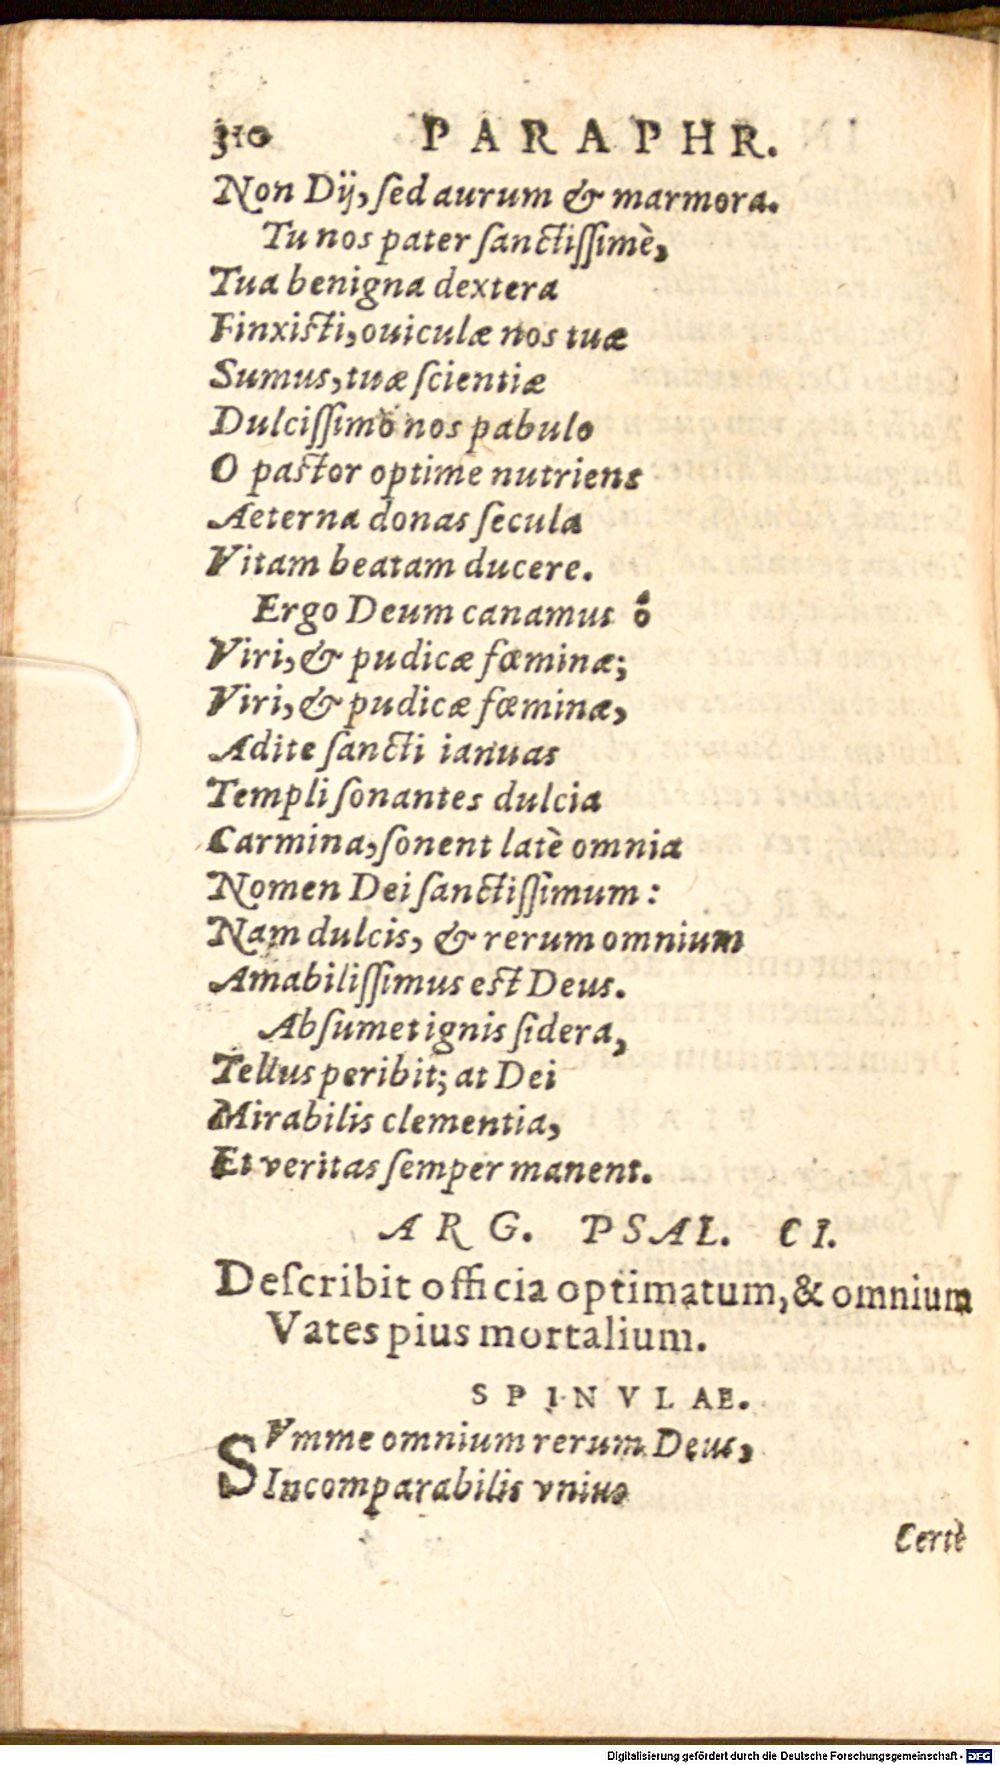 310 PARAPHR.
Non Dij, ſed aurum & marmora.
Tu nos pater ſanctiſſimè,
Tua benigna dextera
Finxisti, ouiculæ nos tuæ
Sumus, tuæ ſcientiæ
Dulciſſimo nos pabulo
O pastor optime nutriens
Aeterna donas ſecula
Vitam beatam ducere.
Ergo Deum canamus ô
Viri, & pudicæ fœminæ;
Viri, & pudicæ fœminæ,
Adite ſancti ianuas
Templi ſonantes dulcia
Carmina, ſonent latè omnia
Nomen Dei ſanctiſſimum:
Nam dulcis, & rerum omnium
Amabiliſſimus est Deus.
Abſumet ignis ſidera,
Tellus peribit; at Dei
Mirabilis clementia,
Et veritas ſemper manent.
ARG. PSAL. CI.
Deſcribit officia optimatum, & omnium
Vates pius mortalium.
SPINVLAE.
SVmme omnium rerum Deus,
Incomparabilis vnius
Certè
Digitalisierung gefördert durch die Deutsche Forschungsgemeinschaft - DFG